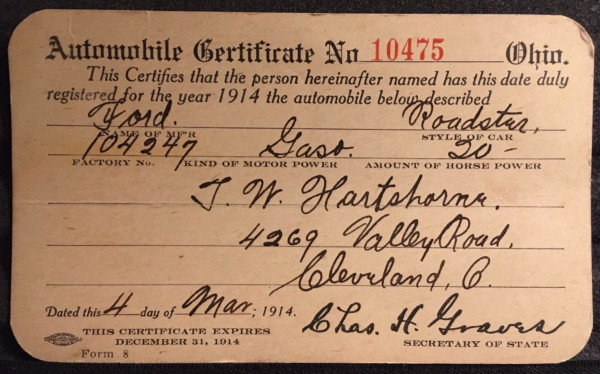 Automobile Certificate No 10475 Ohio.
This Certifies that the person hereinafter named has this date duly
registered for the year 1914 the automobile below described
Ford. Roadster,
NAME OF MF'R STYLE OF CAR
104247 Gaso. 20-
FACTORY No. KIND OF MOTOR POWER AMOUNT OF HORSE POWER
T. W. Hartshorne.
4269 Valley Road,
Cleveland, O.
Dated this 4 day of Mar, 1914.
Chas. H. Graves
THIS CERTIFICATE EXPIRES SECRETARY OF STATE
DECEMBER 31, 1914
Form 8